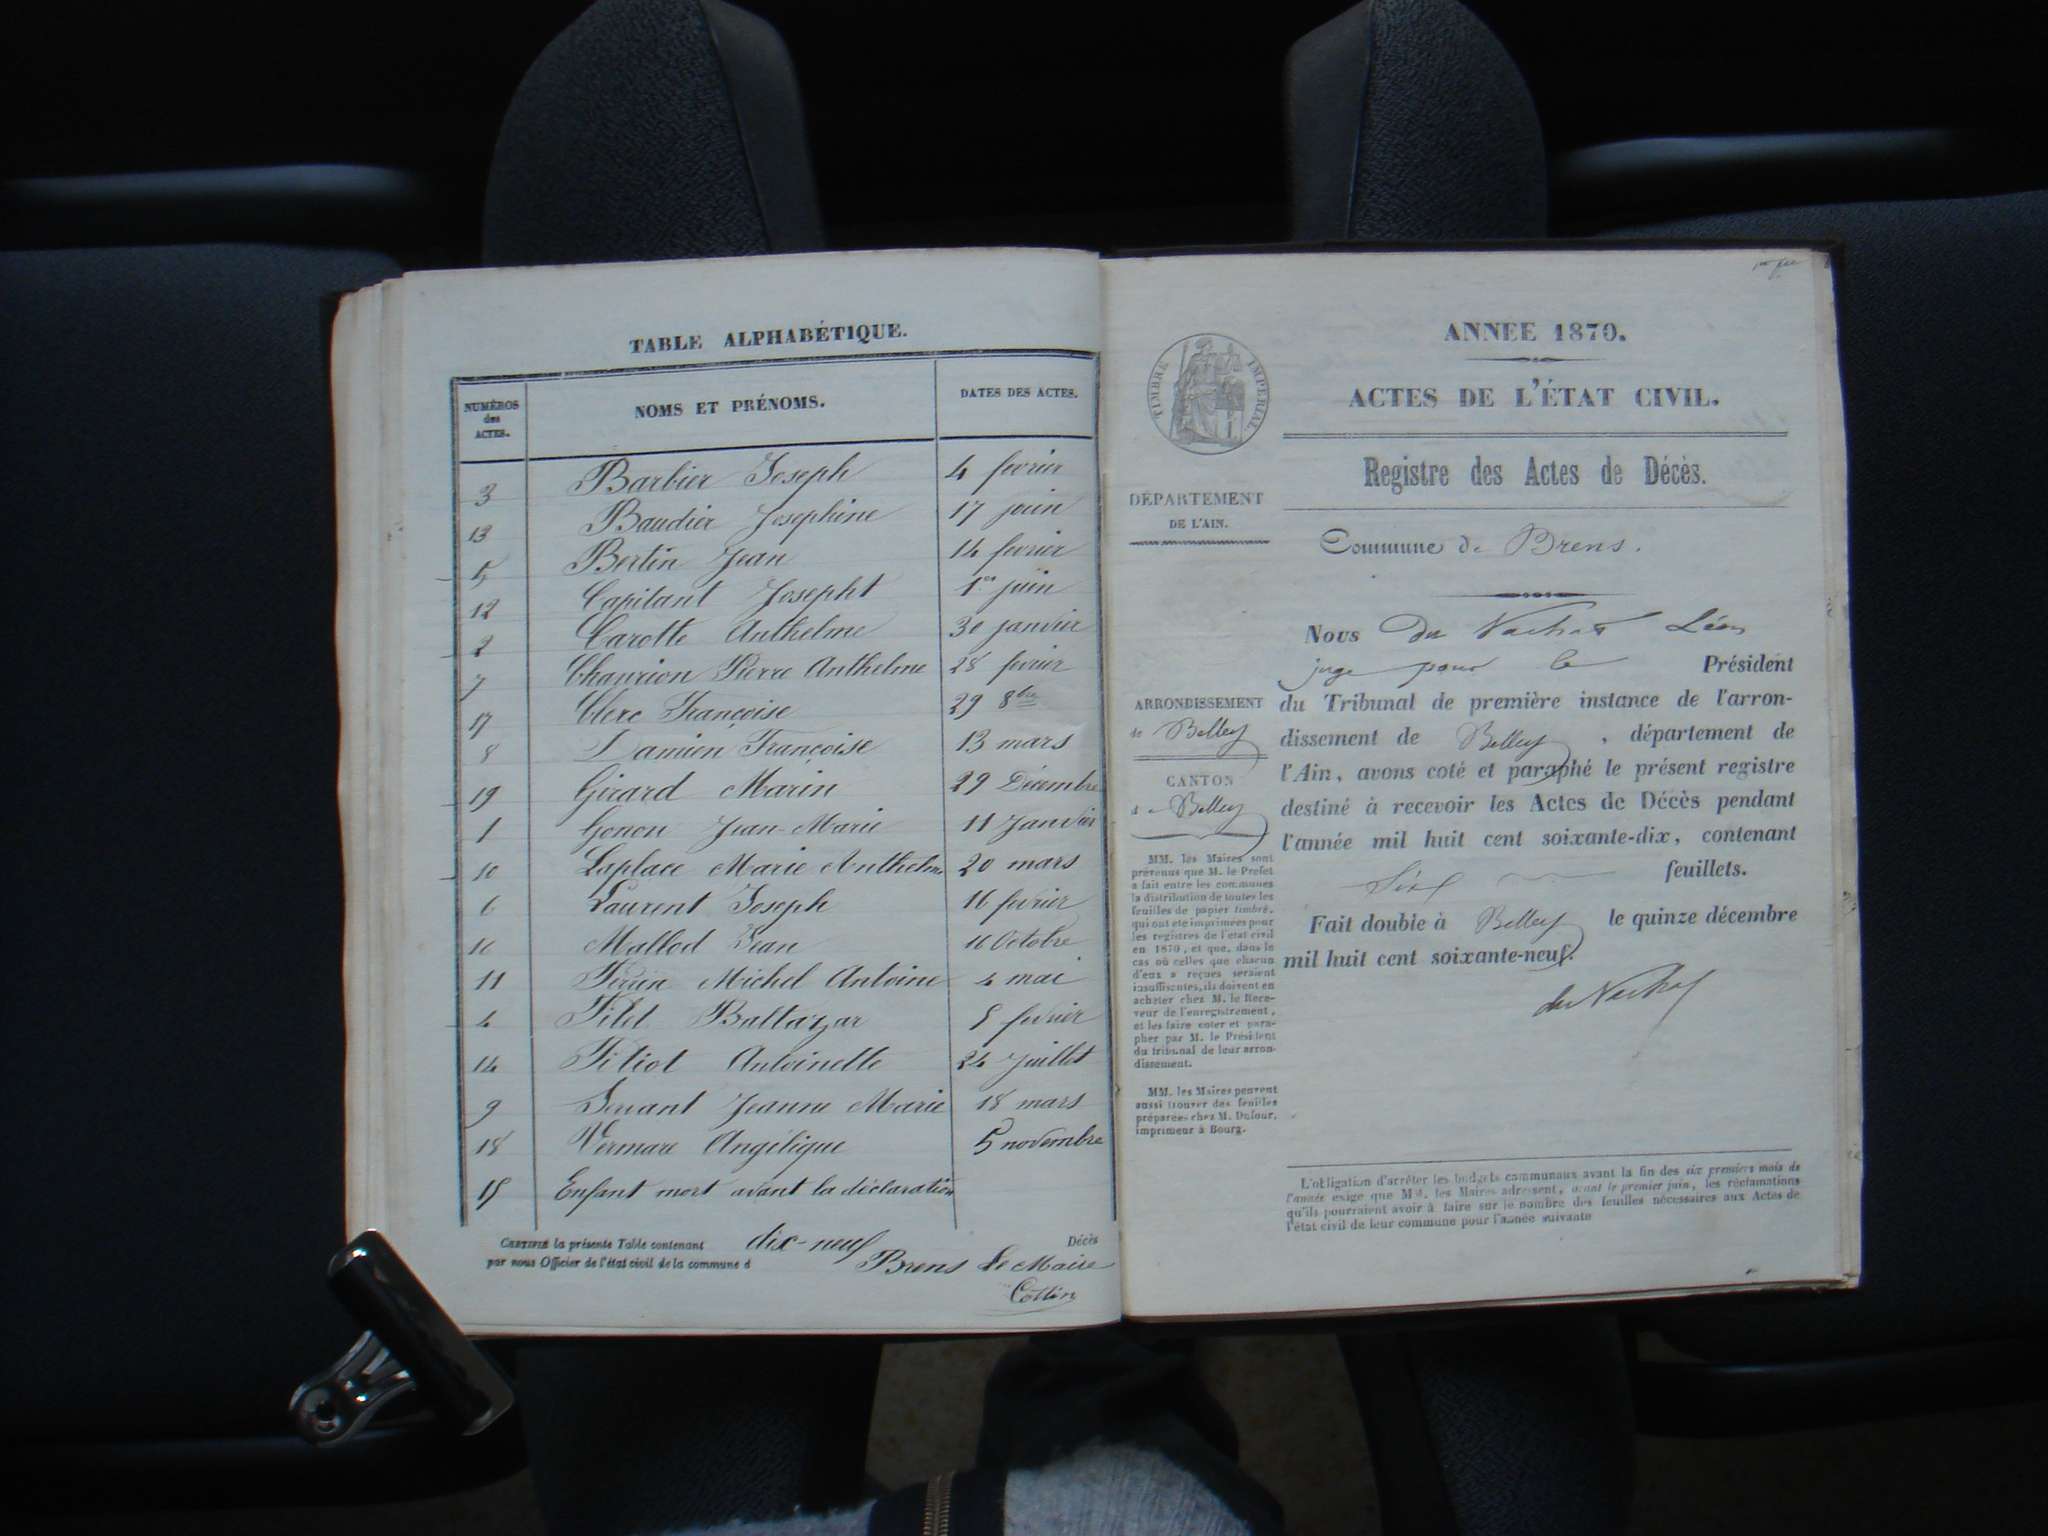 TABLE ALPHABÉTIQUE.
NUMÉROS
des
ACTES.
NOMS ET PRÉNOMS.
DATES DES ACTES.
3 Barbier Joseph 4 fevrier
13 Baudier Josephine 17 juin
5 Bertin Jean 14 fevrier
12 Capitant Josepht 1er juin
2 Carotte Anthelme 30 janvier
7 Chaurion Pierre Anthelme 28 fevrier
17 Clerc Françoise 29 8bre
8 Damien Françoise 13 mars
19 Girard Marin 29 Décembre
1 Gonon Jean-Marie 11 Janvier
10 Laplace Marie Anthelme 20 mars
6 Laurent Joseph 16 fevrier
16 Mallod Jean 16 Octobre
11 Perrin Michel Antoine 4 mai
4 Pilet Baltazar 5 fevrier
14 Pitiot Antoinette 24 Juillet
9 Servant Jeanne Marie 18 mars
18 Vermare Angélique 5 novembre
15 Enfant mort avant la déclaration
CERTIFIÉ la présente Table contenant dix-neuf Décès
par nous Officier de l'état civil de la commune d Brens Le Maire
Collin
ANNEE 1870.
ACTES DE L'ÉTAT CIVIL.
TIMBRE IMPERIAL
Registre des Actes de Décès.
DÉPARTEMENT
DE L'AIN.
Commune de Brens.
Nous du Nachat Léon
juge pour le Président
du Tribunal de première instance de l'arron-
dissement de Belley, département de
l'Ain, avons coté et paraphé le présent registre
destiné à recevoir les Actes de Décès pendant
l'année mil huit cent soixante-dix, contenant
feuillets.
Fait double à Belley le quinze décembre
mil huit cent soixante-neuf.
du Nachat
ARRONDISSEMENT
de Belley
CANTON
de Belley
MM. les Maires sont
prévenus que M. le Prefet
a fait entre les communes
la distribution de toutes les
feuilles de papier timbré,
qui ont été imprimées pour
les registres de l'état civil
en 1870, et que, dans le
cas où celles que chacun
d'eux a reçues seraient
insuffisantes, ils doivent en
acheter chez M. le Rece-
veur de l'enregistrement,
et les faire coter et para-
pher par M. le Président
du tribunal de leur arron-
dissement.
MM. les Maires peuvent
aussi trouver des feuilles
préparées chez M. Dufour,
imprimeur à Bourg.
L'obligation d'arrêter les budgets communaux avant la fin des six premiers mois de
l'année exige que MM. les Maires adressent, avant le premier juin, les réclamations
qu'ils pourraient avoir à faire sur le nombre des feuilles nécessaires aux Actes de
l'état civil de leur commune pour l'année suivante